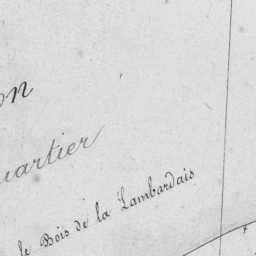 on
uartier
le Bois de la Lambardais